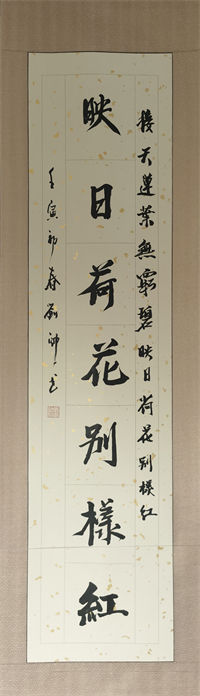 接天蓮葉無窮碧映日荷花別樣紅
映日荷花別樣紅
壬寅初春劉